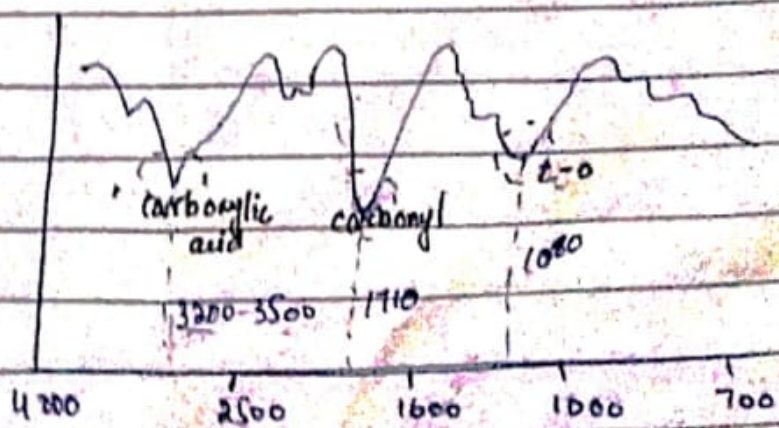 carboxylic
acid
carbonyl
C-O
3200-3500
1710
1080
4000
2500
1600
1000
700